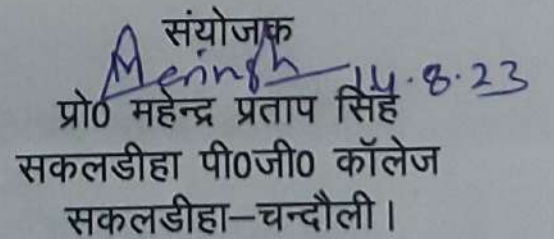 संयोजक
14.8.23
प्रो0 महेन्द्र प्रताप सिंह
सकलडीहा पी0जी0 कॉलेज
सकलडीहा–चन्दौली।